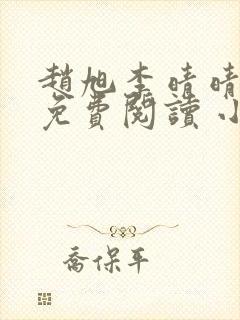 趙旭李晴晴
免費閱讀小
喬保平